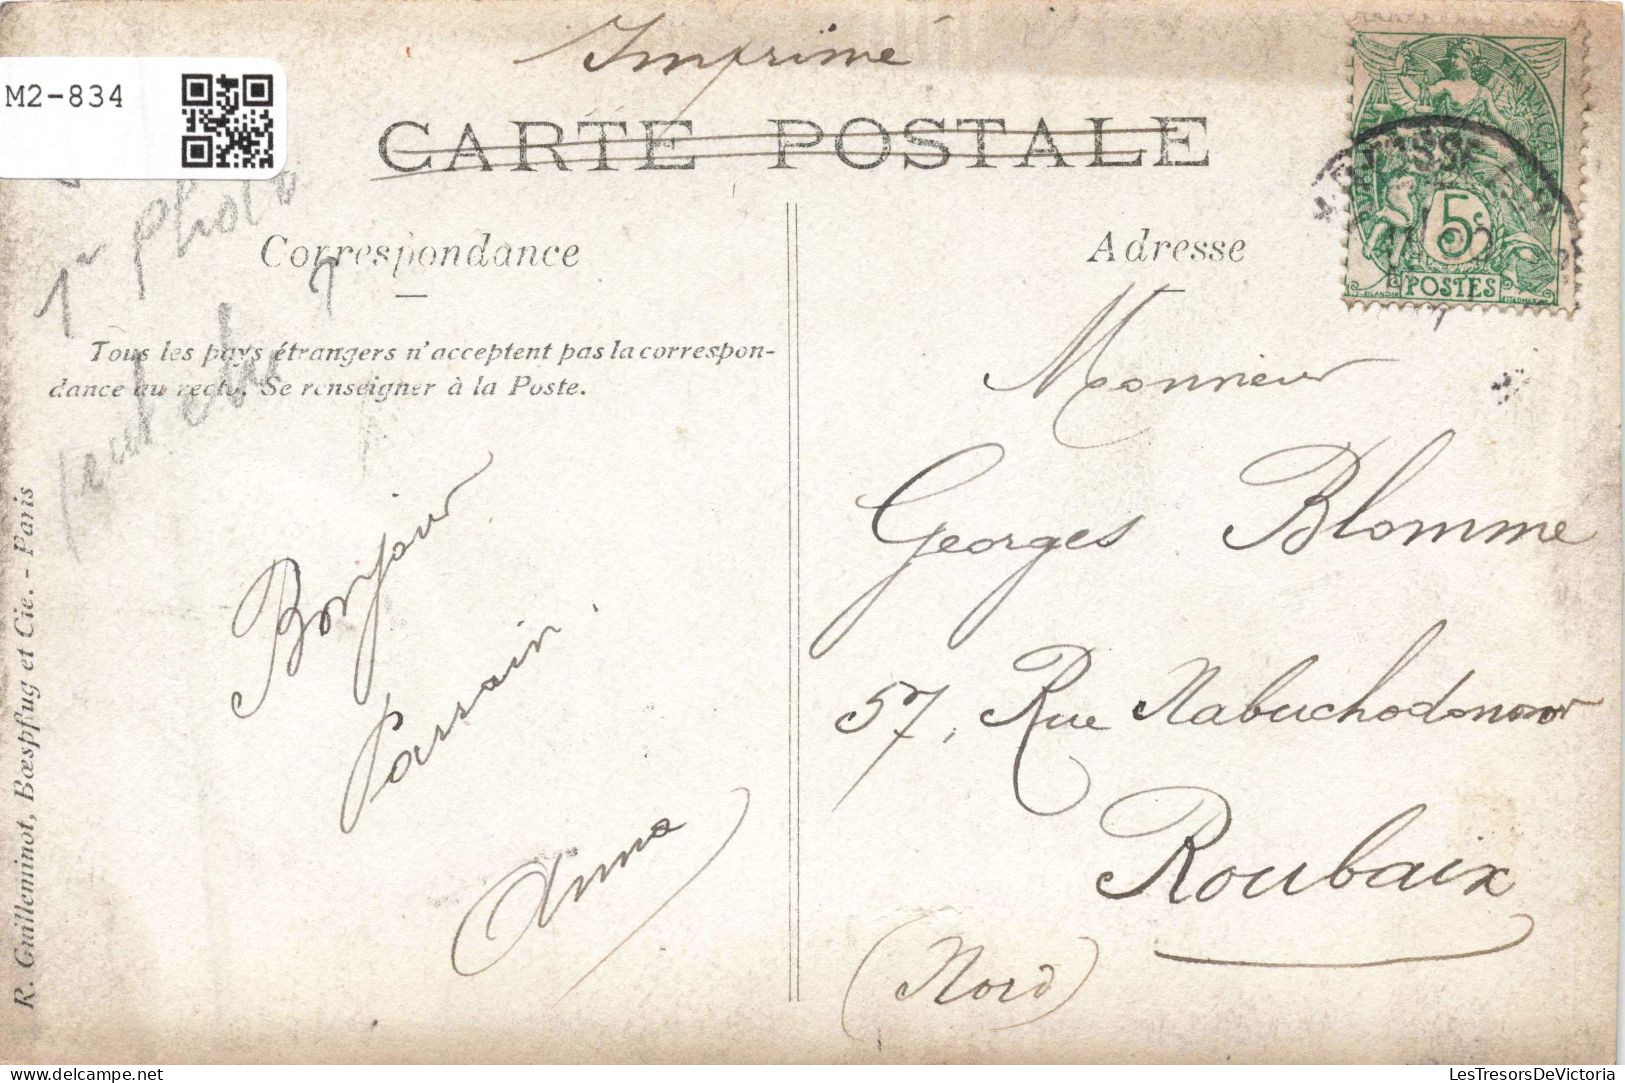 Imprimé
M2-834
CARTE POSTALE
1r photo
Correspondance
Adresse
Tous les pays étrangers n'acceptent pas la correspon-
dance au recto. Se renseigner à la Poste.
R. Guilleminot, Bœspflug et Cie. - Paris
Bonjour
Parrain.
Anna
5c
POSTES
Monsieur
Georges Blomme
57, Rue Nabuchodonosor
Roubaix
(Nord)
LesTresorsDeVictoria